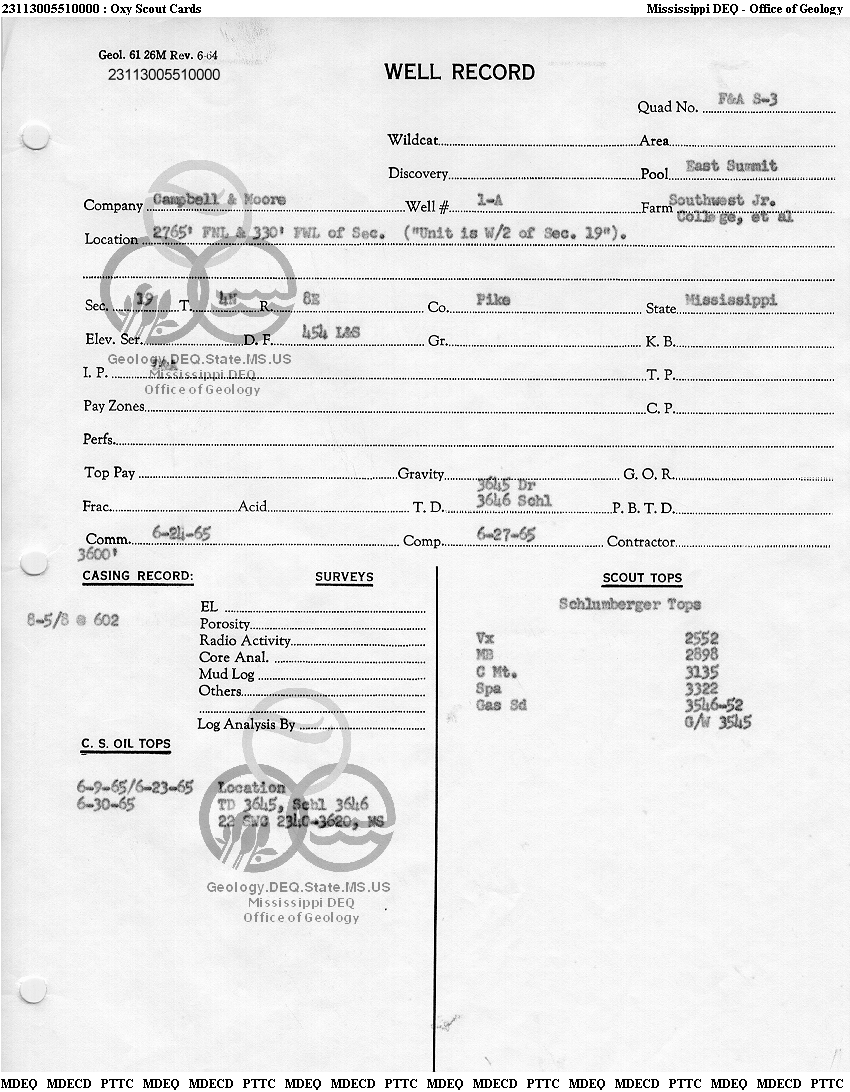 23113005510000 : Oxy Scout Cards Mississippi DEQ - Office of Geology
Geol. 61 26M Rev. 6-64
23113005510000
WELL RECORD
Quad No. F&A S-3
Wildcat Area
Discovery Pool East Summit
Company Campbell & Moore Well # 1-A Farm Southwest Jr.
College, et al
Location 2765' FNL & 330' FWL of Sec. ("Unit is W/2 of Sec. 19").
Sec. 19 T. 4N R. 8E Co. Pike State Mississippi
Elev. Ser. D. F. 454 L&S Gr. K. B.
Geology.DEQ.State.MS.US
Mississippi DEQ
Office of Geology
I. P. T. P.
Pay Zones C. P.
Perfs.
Top Pay Gravity G. O. R.
3645 Dr
Frac. Acid T. D. 3646 Schl P. B. T. D.
Comm. 6-24-65 Comp. 6-27-65 Contractor
3600'
CASING RECORD:
8-5/8 @ 602
SURVEYS
EL
Porosity
Radio Activity
Core Anal.
Mud Log
Others
Log Analysis By
C. S. OIL TOPS
6-9-65/6-23-65 Location
6-30-65 TD 3645, Schl 3646
22 SWC 2340-3620, NS
Geology.DEQ.State.MS.US
Mississippi DEQ
Office of Geology
SCOUT TOPS
Schlumberger Tops
Vx 2552
MB 2898
C Mt. 3135
Spa 3322
Gas Sd 3546-52
G/W 3545
MDEQ MDECD PTTC MDEQ MDECD PTTC MDEQ MDECD PTTC MDEQ MDECD PTTC MDEQ MDECD PTTC MDEQ MDECD PTTC